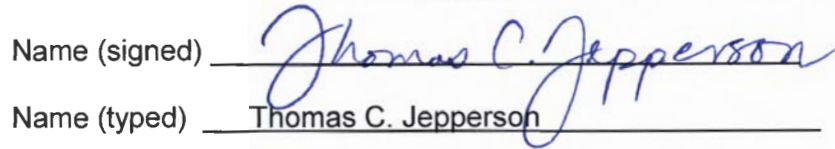 Name (signed) Thomas C. Jepperson
Name (typed) Thomas C. Jepperson